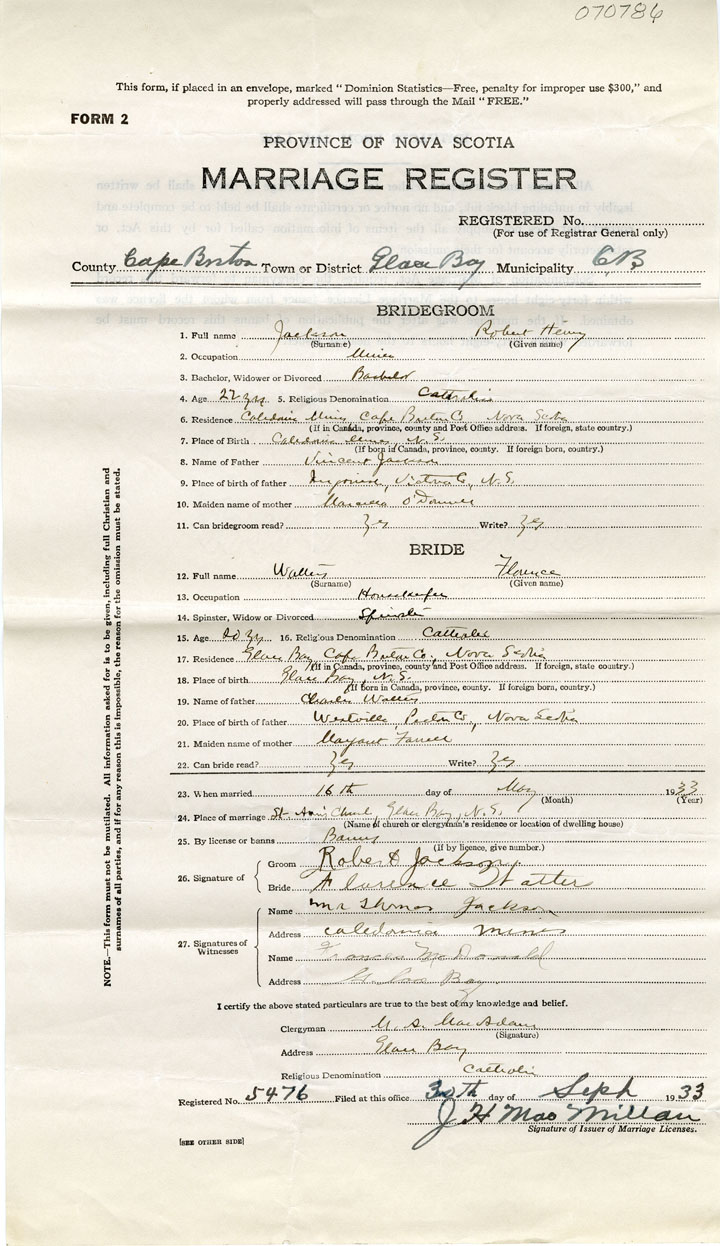 070786
This form, if placed in an envelope, marked "Dominion Statistics—Free, penalty for improper use $300," and
properly addressed will pass through the Mail "FREE."
FORM 2
PROVINCE OF NOVA SCOTIA
MARRIAGE REGISTER
REGISTERED No.
(For use of Registrar General only)
County Cape Breton Town or District Glace Bay Municipality C.B.
BRIDEGROOM
1. Full name Jackson Robert Henry
(Surname) (Given name)
2. Occupation Miner
3. Bachelor, Widower or Divorced Bachelor
4. Age 27 yrs 5. Religious Denomination Catholic
6. Residence Caledonia Mines Cape Breton Co Nova Scotia
(If in Canada, province, county and Post Office address. If foreign, state country.)
7. Place of Birth Caledonia Mines, N.S.
(If born in Canada, province, county. If foreign born, country.)
8. Name of Father Vincent Jackson
9. Place of birth of father Ingonish, Victoria Co, N.S.
10. Maiden name of mother O'Donnell
11. Can bridegroom read? Yes Write? Yes
BRIDE
12. Full name Walters Florence
(Surname) (Given name)
13. Occupation Housekeeper
14. Spinster, Widow or Divorced Spinster
15. Age 20 yrs 16. Religious Denomination Catholic
17. Residence Glace Bay, Cape Breton Co., Nova Scotia
(If in Canada, province, county and Post Office address. If foreign, state country.)
18. Place of birth Glace Bay, N.S.
(If born in Canada, province, county. If foreign born, country.)
19. Name of father Charles Walters
20. Place of birth of father Westville, Pictou Co, Nova Scotia
21. Maiden name of mother Margaret Farrell
22. Can bride read? Yes Write? Yes
23. When married 16th day of May 1933
(Month) (Year)
24. Place of marriage St. Ann's Church, Glace Bay, N.S.
(Name of church or clergyman's residence or location of dwelling house)
25. By license or banns Banns
(If by licence, give number.)
26. Signature of
Groom Robert Jackson
Bride Florence Watters
27. Signatures of Witnesses
Name Mr Thomas Jackson
Address Caledonia Mines
Name Francis McDonald
Address Glace Bay
I certify the above stated particulars are true to the best of my knowledge and belief.
Clergyman M. A. MacAdam
(Signature)
Address Glace Bay
Religious Denomination Catholic
Registered No. 5476 Filed at this office 30th day of Sept 1933
J H MacMillan
Signature of Issuer of Marriage Licenses.
[SEE OTHER SIDE]
NOTE.—This form must not be mutilated. All information asked for is to be given, including full Christian and
surnames of all parties, and if for any reason this is impossible, the reason for the omission must be stated.